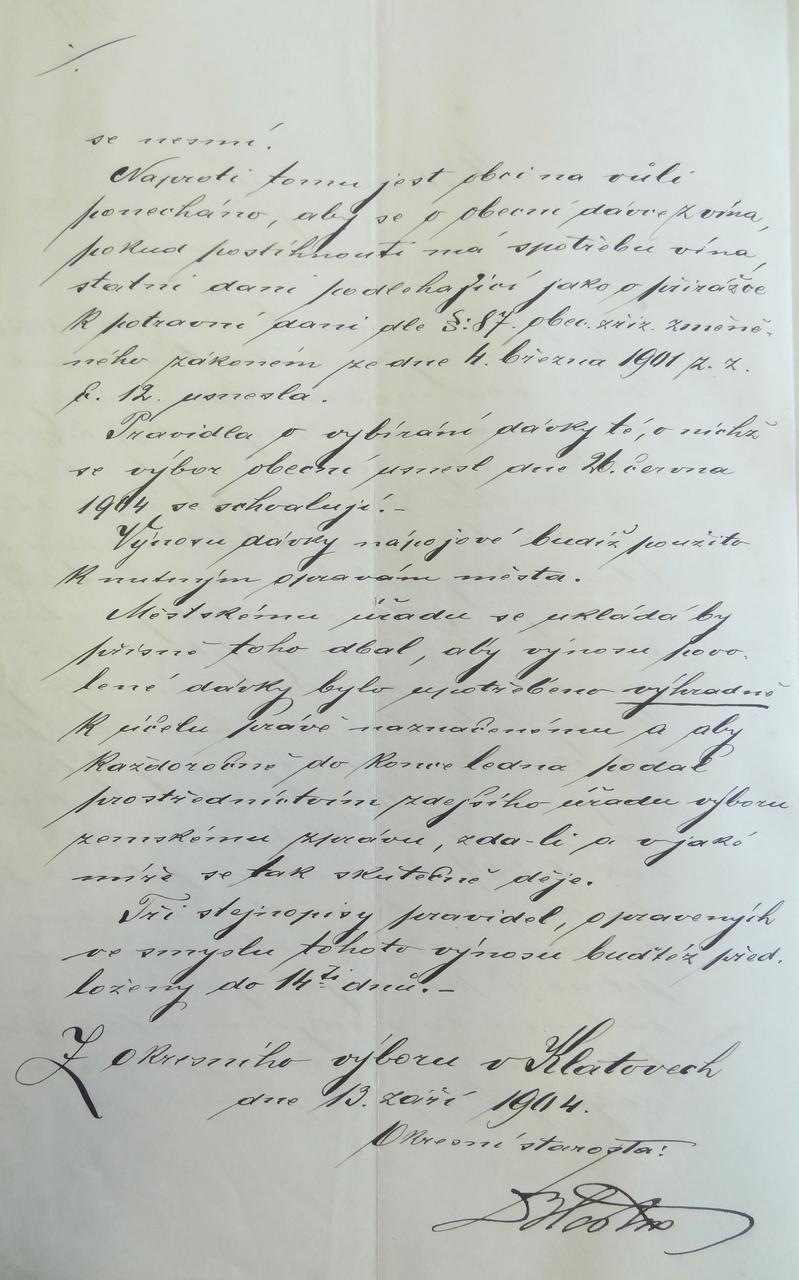 se nesmí.
Naproti tomu jest obci na vůli
ponecháno, aby se o obecní dávce z vína,
pokud postihnouti má spotřebu vína,
státní dani podlehající jako o přirážce
k potravní dani dle §: 87. obec. zříz. změně-
ného zákoném ze dne 4. března 1901 z. z.
č. 12. usnesla.
Pravidla o vybírání dávky té, o nichž
se výbor obecní usnesl dne 26. června
1904 se schvalují.-
Výnosu dávky nápojové budiž použito
k nutným opravám města.
Městskému úřadu se ukládá by
přísně toho dbal, aby výnosu povo-
lené dávky bylo upotřebeno výhradně
k účelu právě naznačenému a aby
každoročně do konce ledna podal
prostřednictvím zdejšího úřadu výboru
zemskému zprávu, zda-li a v jaké
míře se tak skutečně děje.
Tři stejnopisy pravidel, opravených
ve smyslu tohoto výnosu buďtéž před-
loženy do 14ti dnů.-
Z okresního výboru v Klatovech
dne 13. září 1904.
Okresní starosta: